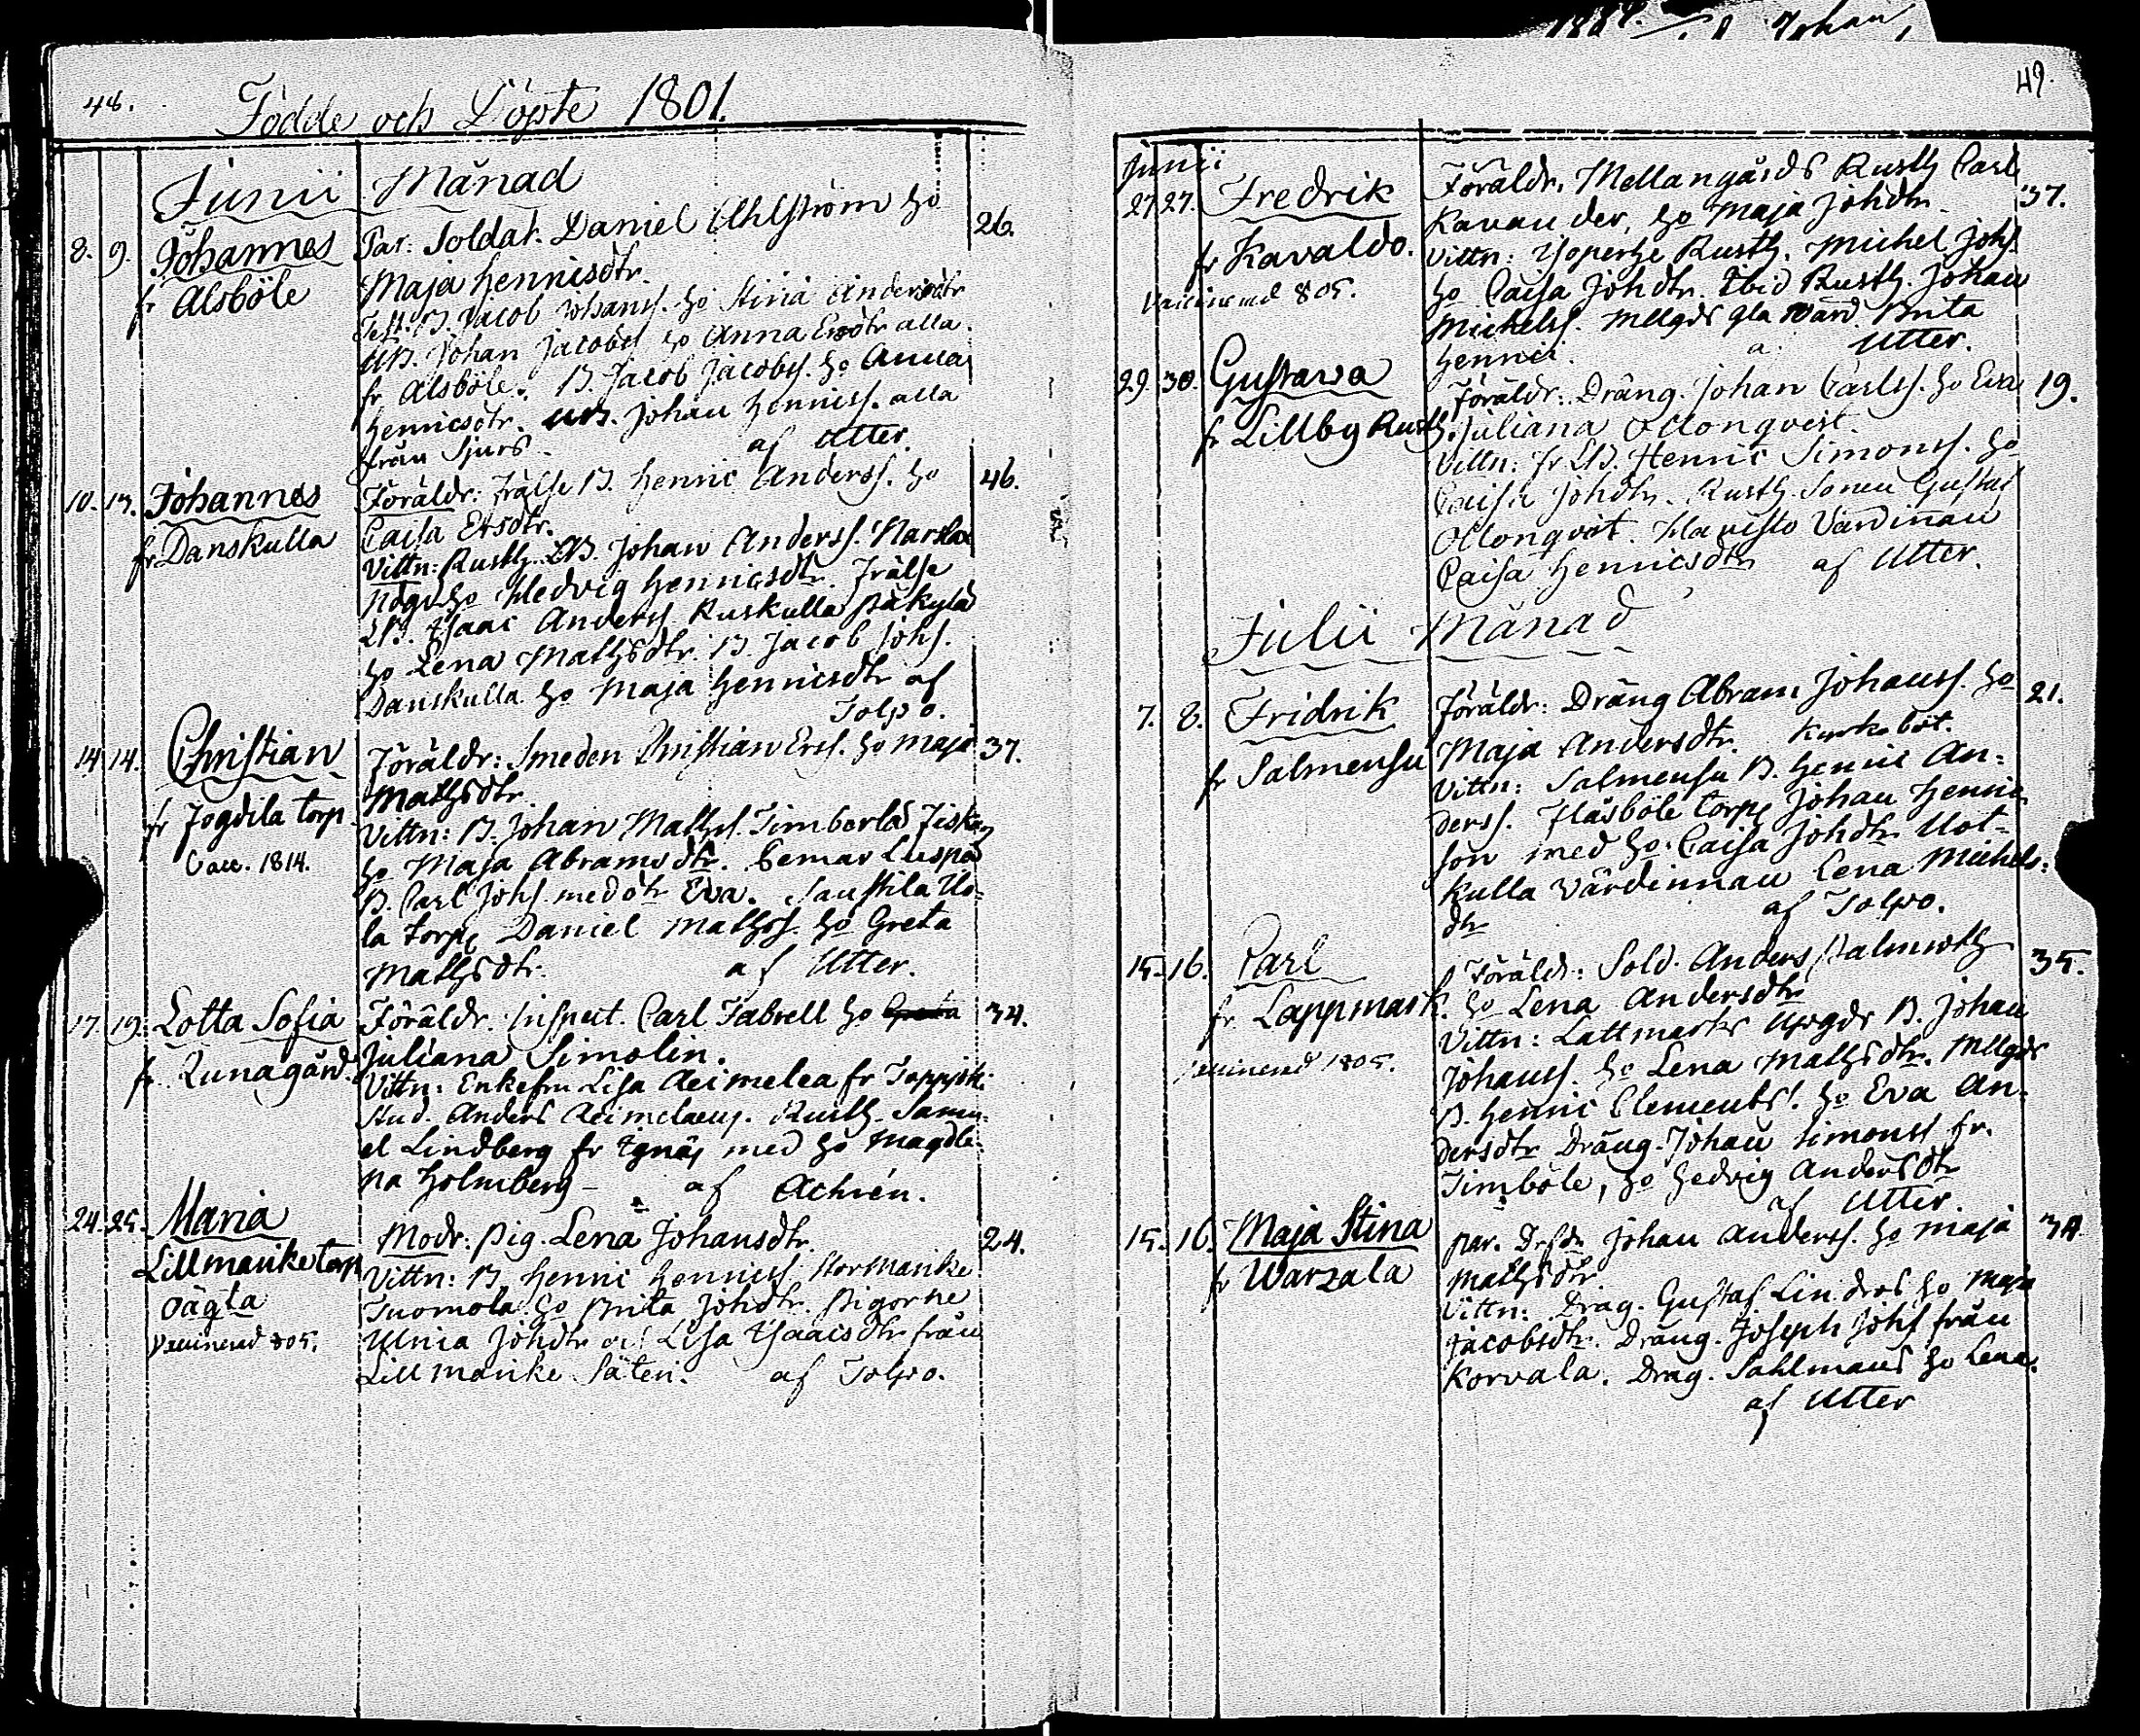 48.
Födde och Döpte 1801.
Junii Månad
8. 9. Johannes
fr Alsböle
Par: Soldat. Daniel Ahlström ho
Maja Hennicsdtr.
26.
Test: B. Jacob Johanss. ho Stina Andersdtr
UB. Johan Jacobss ho Anna Ersdtr alla
fr Alsböle. B. Jacob Jacobss. ho Anna
Henricsdtr. UB. Johan Hennicss. alla
från Sjurs. af Utter.
10. 13. Johannes
fr Danskulla
Föräldr: Frälse B. Henric Anderss. ho
Caisa Ersdtr.
46.
Vittn: Rusth. LB. Johan Anderss. Narsla
ho Hedvig Hennicsdtr. Frälse
LB. Isaac Anderss Ruskulla
ho Lena Mathsdtr. B. Jacob Johs.
Danskulla ho Maja Hennicsdtr af
Tolpo.
14. 14. Christian
fr Jogdila torp.
Vacc. 1814.
Föräldr: Smeden Christian Erss. ho Maja
Mathsdtr
37.
Vittn: B. Johan Mathss. Timberla
ho Maja Abramsdtr.
B. Carl Johs. med dtr Eva.
la torp Daniel Mathss ho Greta
Mathsdtr. af Utter.
17. 19. Lotta Sofia
fr. Runagård.
Föräldr. Inspect. Carl Fabrell ho Greta
Juliana Simolin.
34.
Vittn: Enkefru Lisa Aeimelea fr
Stud. Anders Aeimelaeus. Rusth. Samu-
el Lindberg fr Ignäs med ho Magdle-
na Holmberg - af Achrén.
24. 25. Maria
Lillmarike torp
oägta
Vaccinerad 805.
Modr: Pig. Lena Johansdtr.
24.
Vittn: B. Henric Henricss Stor Marike
Tuomola ho Brita Johdtr. Pigorne
Ulrica Johdtr och Lisa Isaacsdtr från
Lill marike Säteri. af Tolpo.
49.
Junii
27. 27. Fredrik
fr Kavaldo.
Vaccinerad 805.
Föräldr. Mellangårds Rusth Carl
Kavander, ho Maja Johdtr.
37.
Vittn: Rusth. Michel Johs.
ho Caisa Johdtr. Ibid Rusth. Johan
Michelss. Mllgds gla värd. Brita
Hennic. a. Utter.
29. 30. Gustava
fr Lillby Rusth.
Föräldr: Dräng. Johan Carlss. ho Eva
Juliana Olonqvist.
19.
Vittn: fr LB. Henric Simonss. ho
Caisa Johdtr. Rusth. Sonen Gustaf
Olonqvist. Havisto Värdinnan
Caisa Henricsdtr af Utter.
Julii Månad
7. 8. Fridrik
fr Salmensu
Föräldr: Dräng Abram Johanss. ho
Maja Andersdtr.
21.
Vittn: Salmensu B. Henric An-
derss. Fläsböle torp Johan Henric
son med ho. Caisa Johdtr. Uot-
kulla värdinnan Lena Michels-
dtr af Tolpo.
15. 16. Carl
fr. Lappmark.
Vaccinerad 1805.
Föräld: Sold. Anders
ho Lena Andersdtr
35.
Vittn: Lattmarks Upgds B. Johan
Johanss. ho Lena Mathsdtr. Mllgds
B. Henric Clementss. ho Eva An-
dersdtr Dräng. Johan Simonss fr.
Timböle, ho Hedvig Andersdtr
af Utter.
15. 16. Maja Stina
fr Warzala
Par. Johan Anderss. ho Maja
Mathsdtr.
34.
Vittn: Drag. Gustaf Linders ho Maja
Jacobsdtr. Dräng. Joseph Johs från
Korvala. Drag. Sahlmans ho Lena.
af Utter